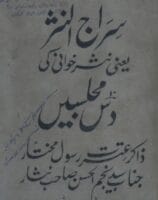 سراج النثر
یعنی نثر خوانی کی
دس مجلسیں
ذاکر عترت رسول مختار
جناب سید نجم الحسن صاحب نثار